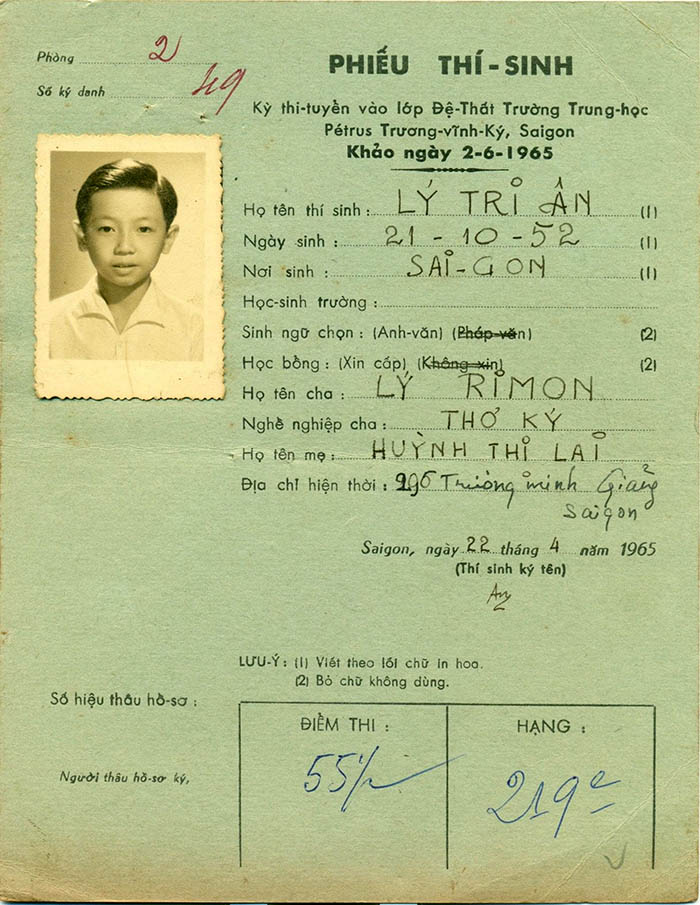 Phòng 2
Số ký danh 49
PHIẾU THÍ-SINH
Kỳ thi-tuyển vào lớp Đệ-Thất Trường Trung-học
Pétrus Trương-vĩnh-Ký, Saigon
Khảo ngày 2-6-1965
Họ tên thí sinh : LÝ TRI ÂN (1)
Ngày sinh : 21 - 10 - 52 (1)
Nơi sinh : SAI-GON (1)
Học-sinh trường :
Sinh ngữ chọn : (Anh-văn) (Pháp-văn) (2)
Học bổng : (Xin cấp) (Không-xin) (2)
Họ tên cha : LÝ RIMON
Nghề nghiệp cha : THƠ KÝ
Họ tên mẹ : HUỲNH THI LAI
Địa chỉ hiện thời : 296 Trương minh Giảng
Saigon
Saigon, ngày 22 tháng 4 năm 1965
(Thí sinh ký tên)
LƯU-Ý : (1) Viết theo lối chữ in hoa.
(2) Bỏ chữ không dùng.
Số hiệu thâu hồ-sơ :
ĐIỂM THI :
HẠNG :
Người thâu hồ-sơ ký,
55
219e